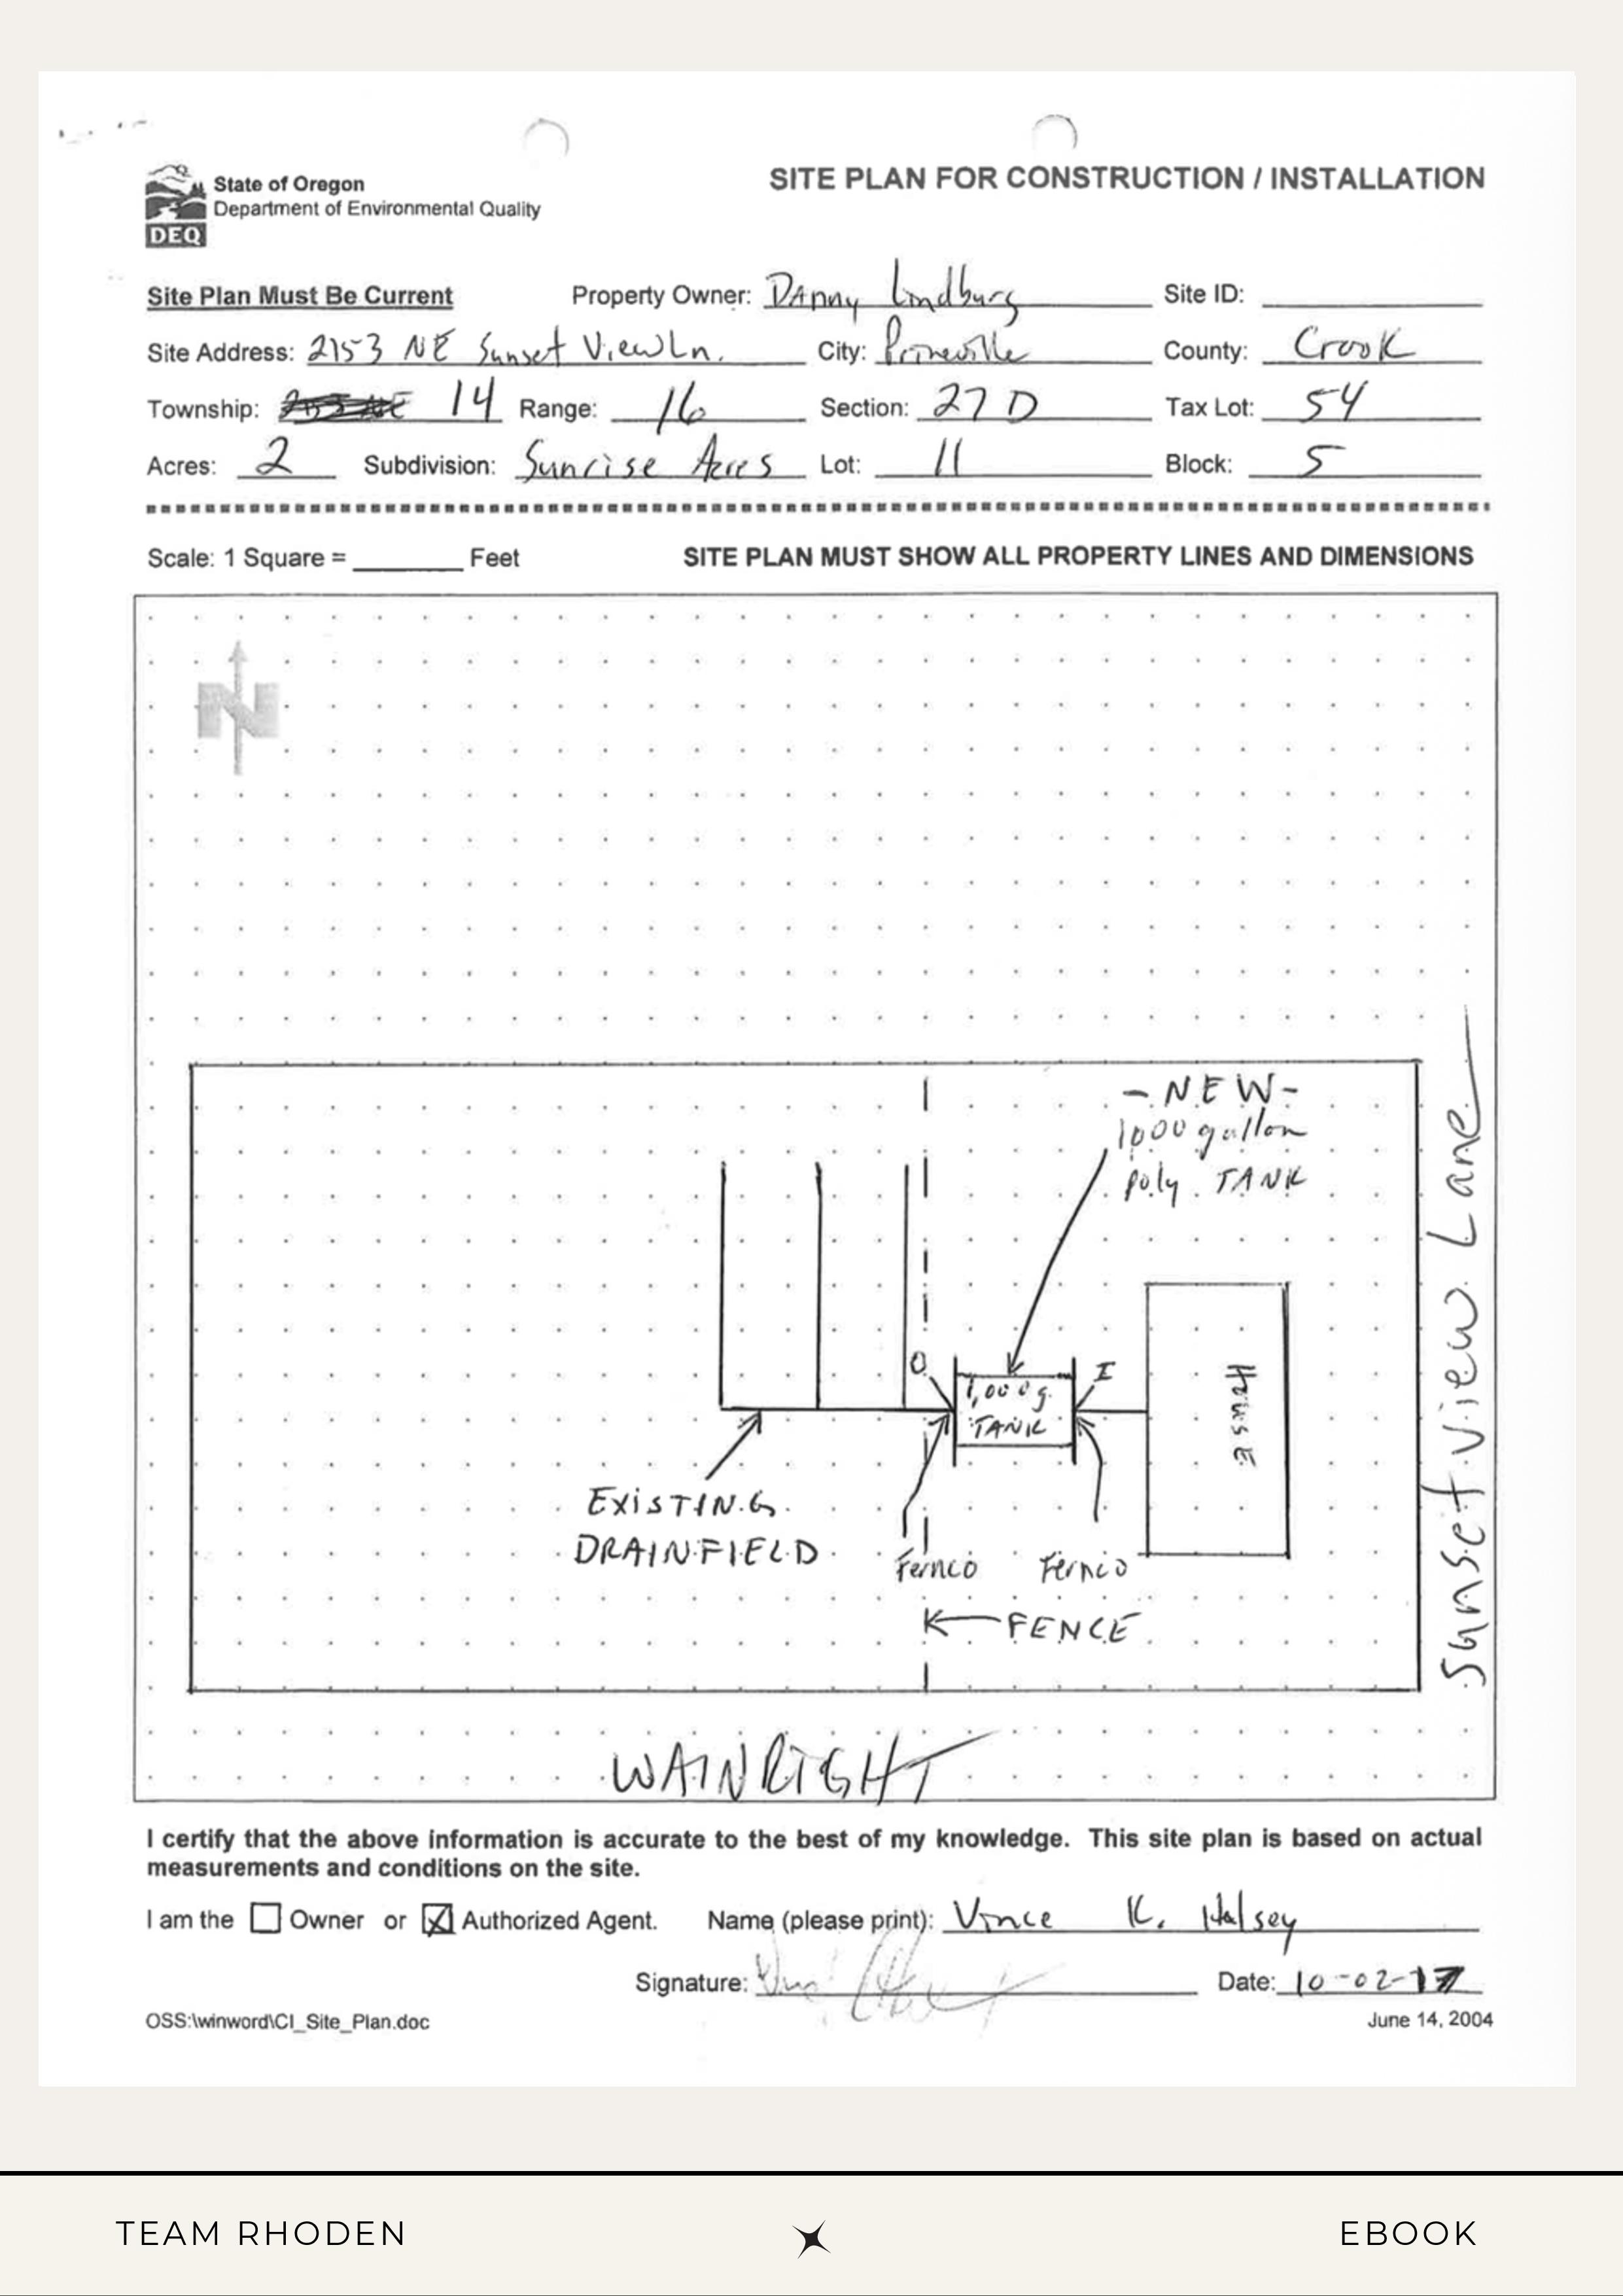 State of Oregon
Department of Environmental Quality
DEQ
SITE PLAN FOR CONSTRUCTION / INSTALLATION
Site Plan Must Be Current Property Owner: Danny Lindburg Site ID:
Site Address: 2153 NE Sunset View Ln. City: Prineville County: Crook
Township: 14 Range: 16 Section: 27 D Tax Lot: 54
Acres: 2 Subdivision: Sunrise Acres Lot: 11 Block: 5
Scale: 1 Square = ______ Feet SITE PLAN MUST SHOW ALL PROPERTY LINES AND DIMENSIONS
N
- NEW -
1000 gallon
poly TANK
Sunset View Lane
O
I
1,000 g.
TANK
House
EXISTING
DRAINFIELD
Fernco Fernco
FENCE
WAINRIGHT
I certify that the above information is accurate to the best of my knowledge. This site plan is based on actual
measurements and conditions on the site.
I am the Owner or Authorized Agent. Name (please print): Vince K. Halsey
Signature: Date: 10-02-17
OSS:\winword\CI_Site_Plan.doc June 14, 2004
TEAM RHODEN EBOOK